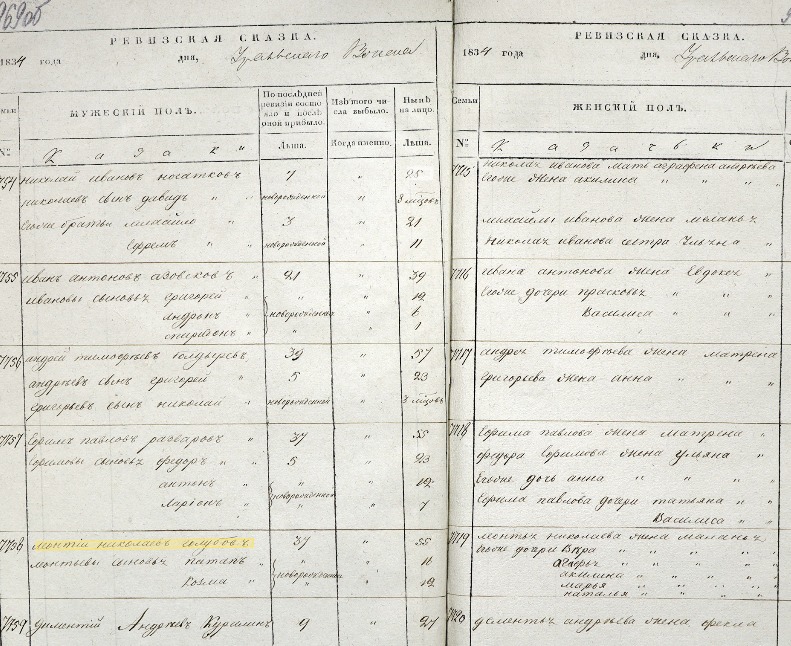 969об
РЕВИЗСКАЯ СКАЗКА.
1834 года дня, Уральскаго Войска
Семьи
МУЖЕСКІЙ ПОЛЪ.
По послѣдней ревизіи состояло и послѣ оной прибыло.
Изъ того числа выбыло.
Нынѣ на лицо.
№
Казаки
Лѣта.
Когда именно.
Лѣта.
Николай Ивановъ 7 " 25
Николаевъ сынъ Давидъ " новорожденной "
Егоже братья Михайло " 3 " 21
Ефремъ " новорожденной " 11
7755 Иванъ Антоновъ Азовсковъ " 21 " 39
Ивановы сыновья Григорей " новорожденныя " 12
Андронъ " " 6
Спиридонъ " " 1
7756 Андрей Тимофѣевъ 39 " 57
Андрѣевъ сынъ Григорей " 5 " 23
Григорьевъ сынъ Николай новорожденной "
7757 Ефимъ Павловъ Разваровъ " 37 " 55
Ефимовы сыновья Федоръ " " 5 " 23
Антонъ " новорожденныя " 12
Ларіонъ " " 7
7758 Монтій Николаевъ Голубовъ 37 " 55
Монтьевы сыновья Патапъ " новорожденныя " 16
Козма " " 12
7759 Диментій Андрѣевъ Курилинъ 9 " 27
РЕВИЗСКАЯ СКАЗКА.
1834 года дня, Уральскаго
Семьи
ЖЕНСКІЙ ПОЛЪ.
№
Казачьи
7715 Николая Иванова мать Аграфена Андрѣева
Егоже жена Акилина " " "
Михайлы Иванова жена Меланья
Николая Иванова сестра Ульяна "
7716 Ивана Антонова жена Евдокея "
Егоже дочери Прасковья " " "
Василиса " " "
7717 Андрея Тимофѣева жена Матрена
Григорьева жена Анна " " "
7718 Ефима Павлова жена Матрена "
Федора Ефимова жена Ульяна "
Егоже дочь Анна " " "
Ефима Павлова дочери Татьяна " "
Василиса " "
7719 Монтья Николаева жена Маланья
Егоже дочери Вѣра " " " "
Агафья " " " "
Акилина " " " "
Марья " " " "
Наталья " " " "
7720 Дементья Андрѣева жена Фекла